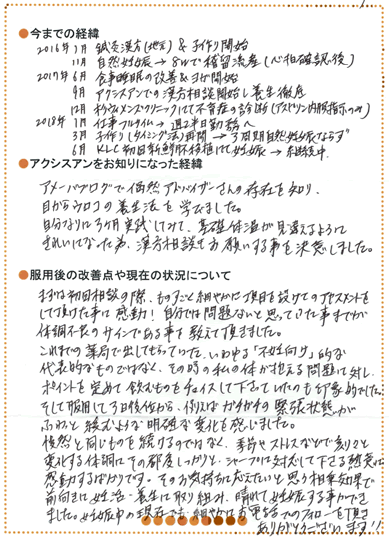 ●今までの経緯
2016年1月 鍼灸漢方(地元)& 子作り開始
11月 自然妊娠→8wで稽留流産(心拍確認後)
2017年6月 食事睡眠の改善&ヨガ開始
9月 アクシスアンでの漢方相談開始し養生徹底
12月 ウィメンズクリニックにて不育症の診断(アスピリン内服指示のみ)
2018年1月 仕事フルタイム→週2半日勤務へ
3月 子作り(タイミング法)再開→3周期自然妊娠ならず
6月 KLC初回新鮮胚移植にて妊娠→継続中
●アクシスアンをお知りになった経緯
アメーバブログで偶然アドバイザーさんの存在を知り、
目からウロコの養生法を学びました。
自分なりに3ヶ月実践してみて、基礎体温が見違えるように
きれいになった為、漢方相談をお願いする事を決意しました。
●服用後の改善点や現在の状況について
まずは初回相談の際、ものすごく細やかに項目を設けてのアセスメントを
して頂けた事に感動!自分では問題ないと思っていた事までが
体調不良のサインである事を教えて頂きました。
これまでの薬局で出してもらっていた、いわゆる「不妊向け」的な
代表的なものではなく、その時の私の体が抱える問題に対し、
ポイントを定めて飲むものをチョイスして下さっていたのも印象的でした。
そして服用して3日後位から、例えばガチガチの緊張状態が
ふわっと緩むような明確な変化を感じました。
漫然と同じものを続けるのではなく、季節やストレスなどで刻々と
変化する体調にその都度しっかりと、シャープに対応して下さる熱意に
感動するばかりです。その気持ちに応えたいと思う相乗効果で
前向きに妊活・養生に取り組み、晴れて妊娠する事ができ
ました。妊娠中の現在でも、細やかなお電話でのフォローを頂き
ありがとうございます!!